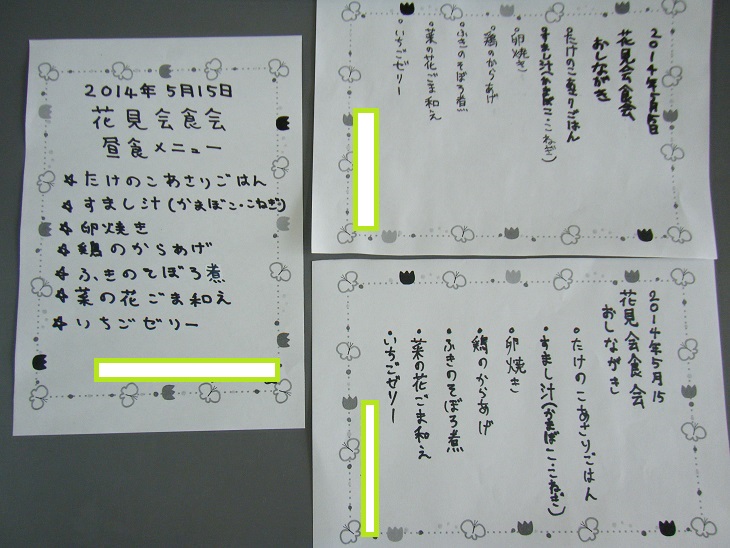 2014年5月15日
花見会食会
昼食メニュー
☆たけのこあさりごはん
☆すまし汁(かまぼこ・こねぎ)
☆卵焼き
☆鶏のからあげ
☆ふきのそぼろ煮
☆菜の花ごま和え
☆いちごゼリー
2014年5月15日
花見会食会
おしながき
•たけのこあさりごはん
•すまし汁(かまぼこ・こねぎ)
•卵焼き
•鶏のからあげ
•ふきのそぼろ煮
•菜の花ごま和え
•いちごゼリー
2014年5月15
花見会食会
おしながき
•たけのこあさりごはん
•すまし汁(かまぼこ・こねぎ)
•卵焼き
•鶏のからあげ
•ふきのそぼろ煮
•菜の花ごま和え
•いちごゼリー